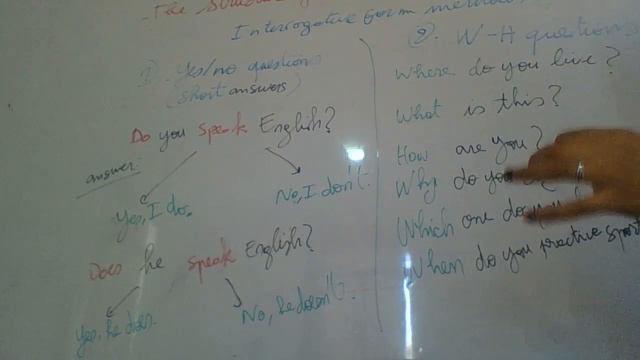 The
Interrogative form
1) Yes/no question
(short answers)
Do you speak English?
answer:
Yes, I do.
No, I don't.
Does he speak English?
Yes, he does.
No, he doesn't.
2. W-H questions
Where do you live?
What is this?
How are you?
Why do you
Which one do you
When do you practive sport